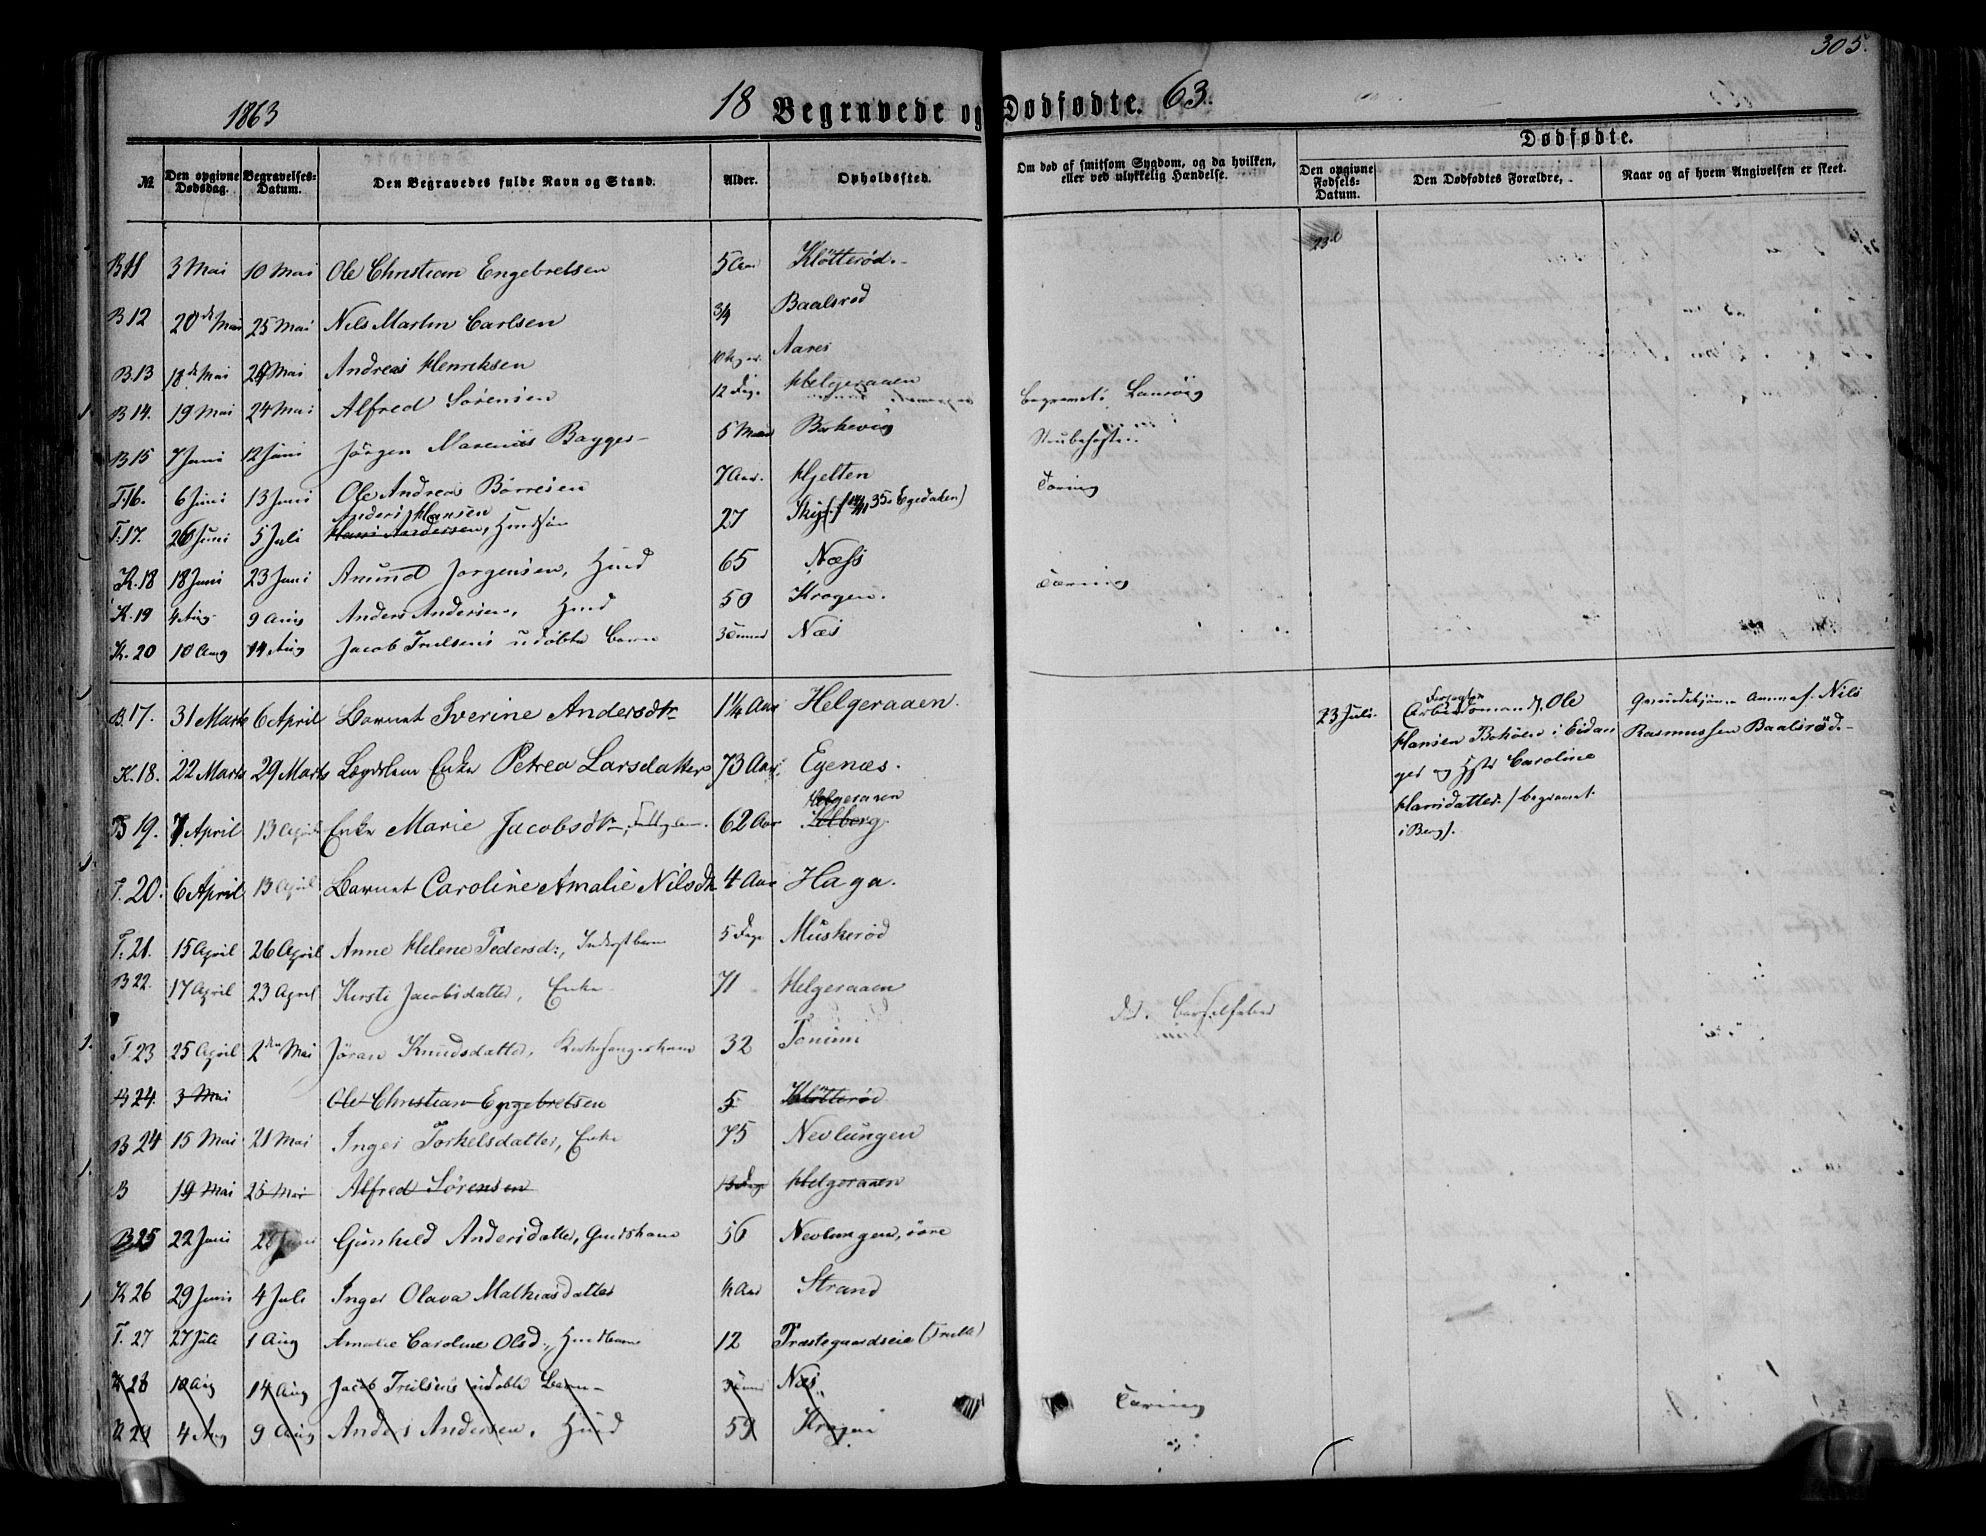 305.
1863
18 Begravede og Dødfødte. 63.
Dødfødte.
№.
Den opgivne Dødsdag.
Begravelses-Datum.
Den Begravedes fulde Navn og Stand.
Alder.
Opholdssted.
Om død af smitsom Sygdom, og da hvilken, eller ved ulykkelig Hændelse.
Den opgivne Fødsels-Datum.
Den Dødfødtes Forældre,
Naar og af hvem Angivelsen er skeet.
B 11 3 Mai 10 Mai Ole Christian Engebretsen 5 Aar Kløtterød.
B 12 20de Mai 25 Mai Nils Martin Carlsen 3/4 Baalsrød
B. 13 18de Mai 24 Mai Andreas Henriksen Aares
B 14. 19 Mai 24 Mai Alfred Sørensen 12 Dage Helgeraaen
B 15 7 Juni 12 Juni Jörgen Marenius 5 Barkevig Strubehoste
T. 16. 6 Juni 13 Juni Ole Andreas Börresen 7 Aar. Hjelten Tæring
Anders Hansen
T. 17. 26 Juni 5 Juli Hans Andersen, Huusf 27
K. 18 18 Juni 23 Juni Amund Jorgensen, Huusmd 65 Næss Tæring
K. 19 4 Aug. 9 Aug Anders Andersen, Huusmd 50 Krogen.
K. 20 10 Aug 14 Aug Jacob Trulsens udøbte Barn Næs
B. 17. 31 Marts 6 April Barnet Iverine Andersdtr 1 1/4 Aar Helgeraaen.
K. 18. 22 Marts 29 Marts Enke Petrea Larsdatter 73 Aar, Egenæs.
Helgeraaen
B 19. 7 April 13 April Enke Marie Jacobsdtr, 62 Aar
T. 20. 6 April 13 April Barnet Caroline Amalie Nilsdtr 4 Aar Haga.
T. 21. 15 April 26 April Anne Helene Pedersd:, 5 Dage Muskerød
B 22. 17 April 23 April Kirsti Jacobsdatter, Enke 71 Helgeraaen
T. 23 25 April 2den Mai Jøran Knudsdatter, Kirkesangerkone 32 Tanum
B 24. 3 Mai Ole Christian Engebretsen 5 Kløtterød
B 24 15 Mai 21 Mai Inger Torkelsdatter, Enke 75 Nevlungen
B 19 Mai 25 Mai Alfred Sørensen Helgeraaen
B 25 22 Juni 28 Juni Gunhild Andersdatter, 56 Nevlungen, øvre
K 26 29 Juni 4 Juli Inger Olava Mathiasdatter Strand
T. 27 27 Juli 1 Aug Amalie Caroline Olsd., 12 Præstegaardseie
K 28 10 Aug 14 Aug Jacob Trulsens udøbte Barn Næs.
K 29 4 Aug 9 Aug Anders Andersen, Huusmd 59 Krogen Tæring
23 Juli.
Arbeidsmand, Ole
Hansen i Eidan
ger og Hstr Caroline
Hansdatter. / begravet
i Berg/.
Nils
Rasmussen Baalsrød.